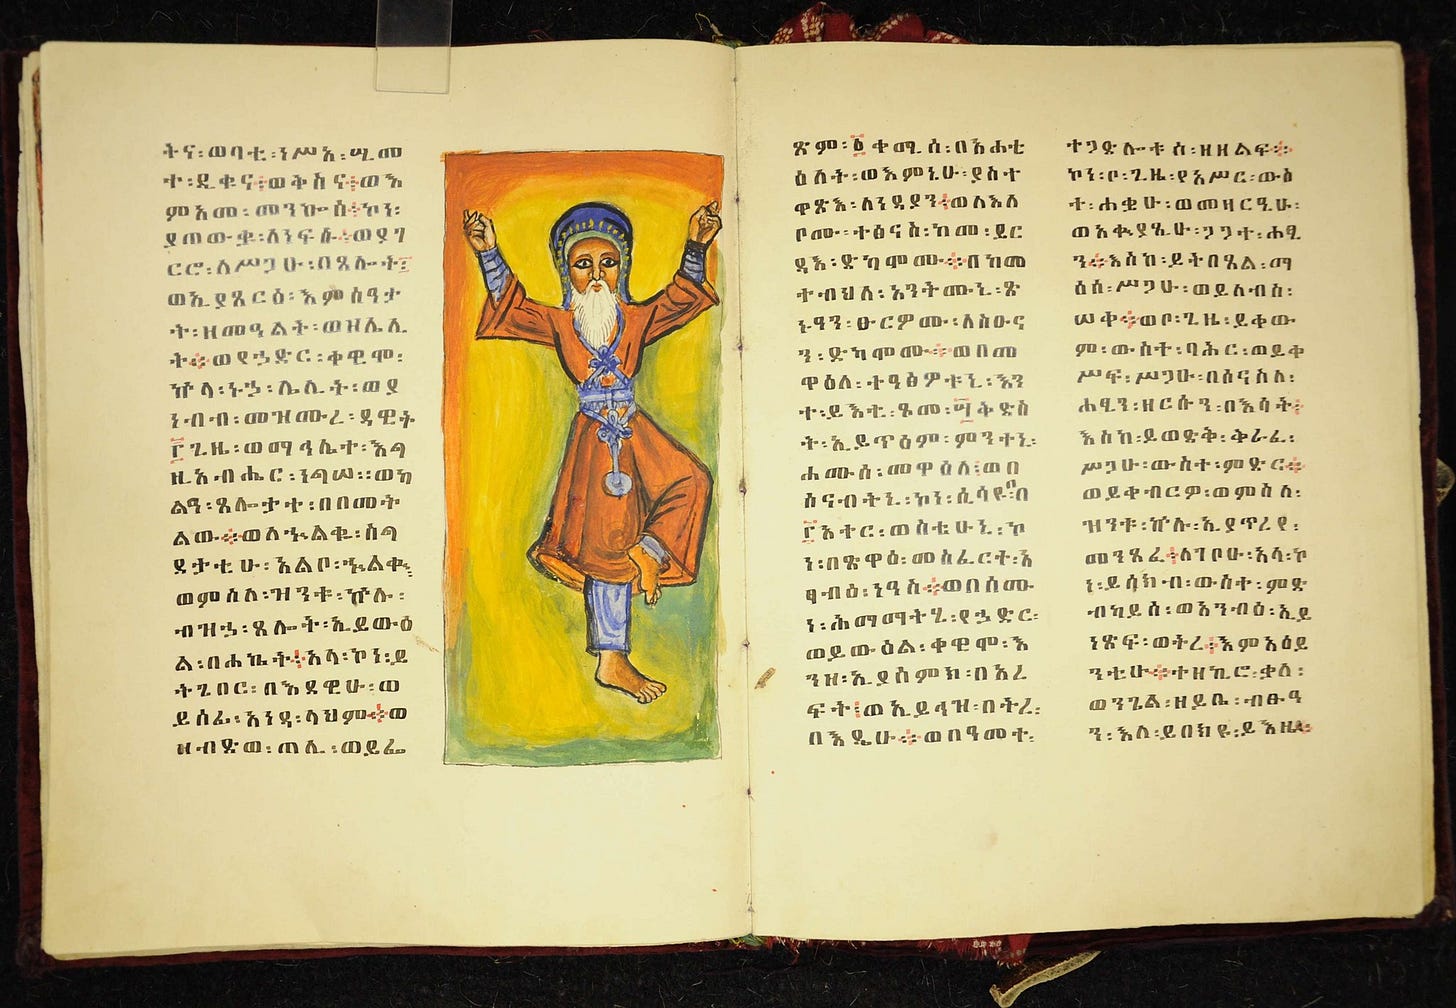 ትና፡ወባቲ፡ነሥአ፡ሢመ
ተ፡ዲቁና፨ወቅስና፨ወእ
ምአመ፡መንኰሰ፨ኮነ፡
ያጠውቃ፡ለነፍሱ፨ወያገ
ርሮ፡ለሥጋሁ፡በጸሎት፤
ወኢያጸርዕ፡እምሰዓታ
ት፡ዘመዓልት፡ወዘሌሊ
ት፨ወየኃድር፡ቀዊሞ፡
ኵላ፡ኑኃ፡ሌሊት፡ወያ
ነብብ፡መዝሙረ፡ዳዊት
፫ጊዜ፡ወማኅሌተ፡እግ
ዚአብሔር፡ነግሠ፡፡ወካ
ልዓ፡ጸሎታተ፡በበመት
ልው፨ወለኍልቈ፡ስግ
ደታቲሁ፡አልቦ፡ኍልቈ፤
ወምስለ፡ዝንቱ፡ኵሉ፡
ብዝኃ፡ጸሎት፡ኢይውዕ
ል፡በሐኬት፨አላ፡ኮነ፡ይ
ትጌበር፡በእደዊሁ፡ወ
ይሰፊ፡አነዳ፡ላህም፨ወ
ዘብድወ፡ጠሊ፡ወይፌ
ጽም፡፩ቀሚሰ፡በአሐቲ
ዕለት፡ወእምኔሁ፡ያስተ
ዋጽእ፡ለነዳያን፨ወለእለ
ቦሙ፡ተፅናስ፡ከመ፡ይር
ዳእ፡ድካሞሙ፨በከመ
ተብህለ፡አንትሙኒ፡ጽ
ኑዓን፡ፁርዎሙ፡ለስዑና
ን፡ድካሞሙ፨ወበመ
ዋዕለ፡ተዓፅዎቱኒ፡እን
ተ፡ይእቲ፡ጾመ፡፵ቅድስ
ት፡ኢይጥዕም፡ምንተኒ፡
ሐሙሰ፡መዋዕለ፤ወበ
ሰናብትኒ፡ኮነ፡ሲሳዩ፡በ
፫አተር፡ወስቴሁኒ፡ኮ
ነ፡በጽዋዕ፡መስፈርት፡አ
ፃብዕ፡ነዓስ፨ወበሰሙ
ነ፡ሕማማትሂ፡የኃድር፡
ወይውዕል፡ቀዊሞ፡እ
ንዘ፡ኢያሰምክ፡በአረ
ፍት፤ወኢይላዝ፡በትረ፡
በእዴሁ፨ወበዓመተ፡
ተጋድሎቱ፡ሰ፡ዘዘልፍ፨
ኮነ፡ቦ፡ጊዜ፡የአሥር፡ውፅ
ተ፡ሐቌሁ፡ወመዛርዒሁ፡
ወአቍያጺሁ፡ጋጋተ፡ሐፂ
ን፨እስከ፡ይትበጸል፡ማ
ዕሰ፡ሥጋሁ፡ወይለብስ፡
ሠቀ፨ወቦ፡ጊዜ፡ይቀው
ም፡ውስተ፡ባሕር፡ወይቀ
ሥፍ፡ሥጋሁ፡በሰናስለ፡
ሐፂን፡ዘርሱን፡በእሳት፨
እስከ፡ይወድቅ፡ቅራፈ፡
ሥጋሁ፡ውስተ፡ምድር፨
ወይቀብርዎ፡ወምስለ፡
ዝንቱ፡ኵሉ፡ኢያጥረየ፡
መንጸፈ፨ለገቦሁ፡አላ፡ኮ
ነ፡ይሰክብ፡ውስተ፡ምድ
ብካይሰ፡ወእንብዕ፡ኢይ
ነጽፍ፡ወትረ፨እምአዕይ
ንቲሁ፨ተዘኪሮ፡ቃለ፡
ወንጌል፡ዘይቤ፡ብፁዓ
ን፡እለ፡ይበክዩ፡ይእዜ፨